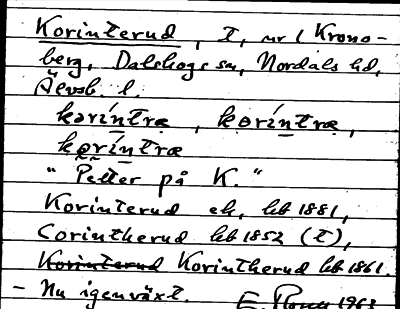 Korinterud, t, nr 1 Krono-
berg, Dalskogs sn, Nordals hd,
Älvsb. l.
kəríntræ, kəríntræ,
kəríntræ
"Petter på K."
Korinterud ek, hfl 1881,
Corintherud hfl 1852 (t),
Korinterud Korintherud hfl 1861.
- Nu igenväxt. E. 1963